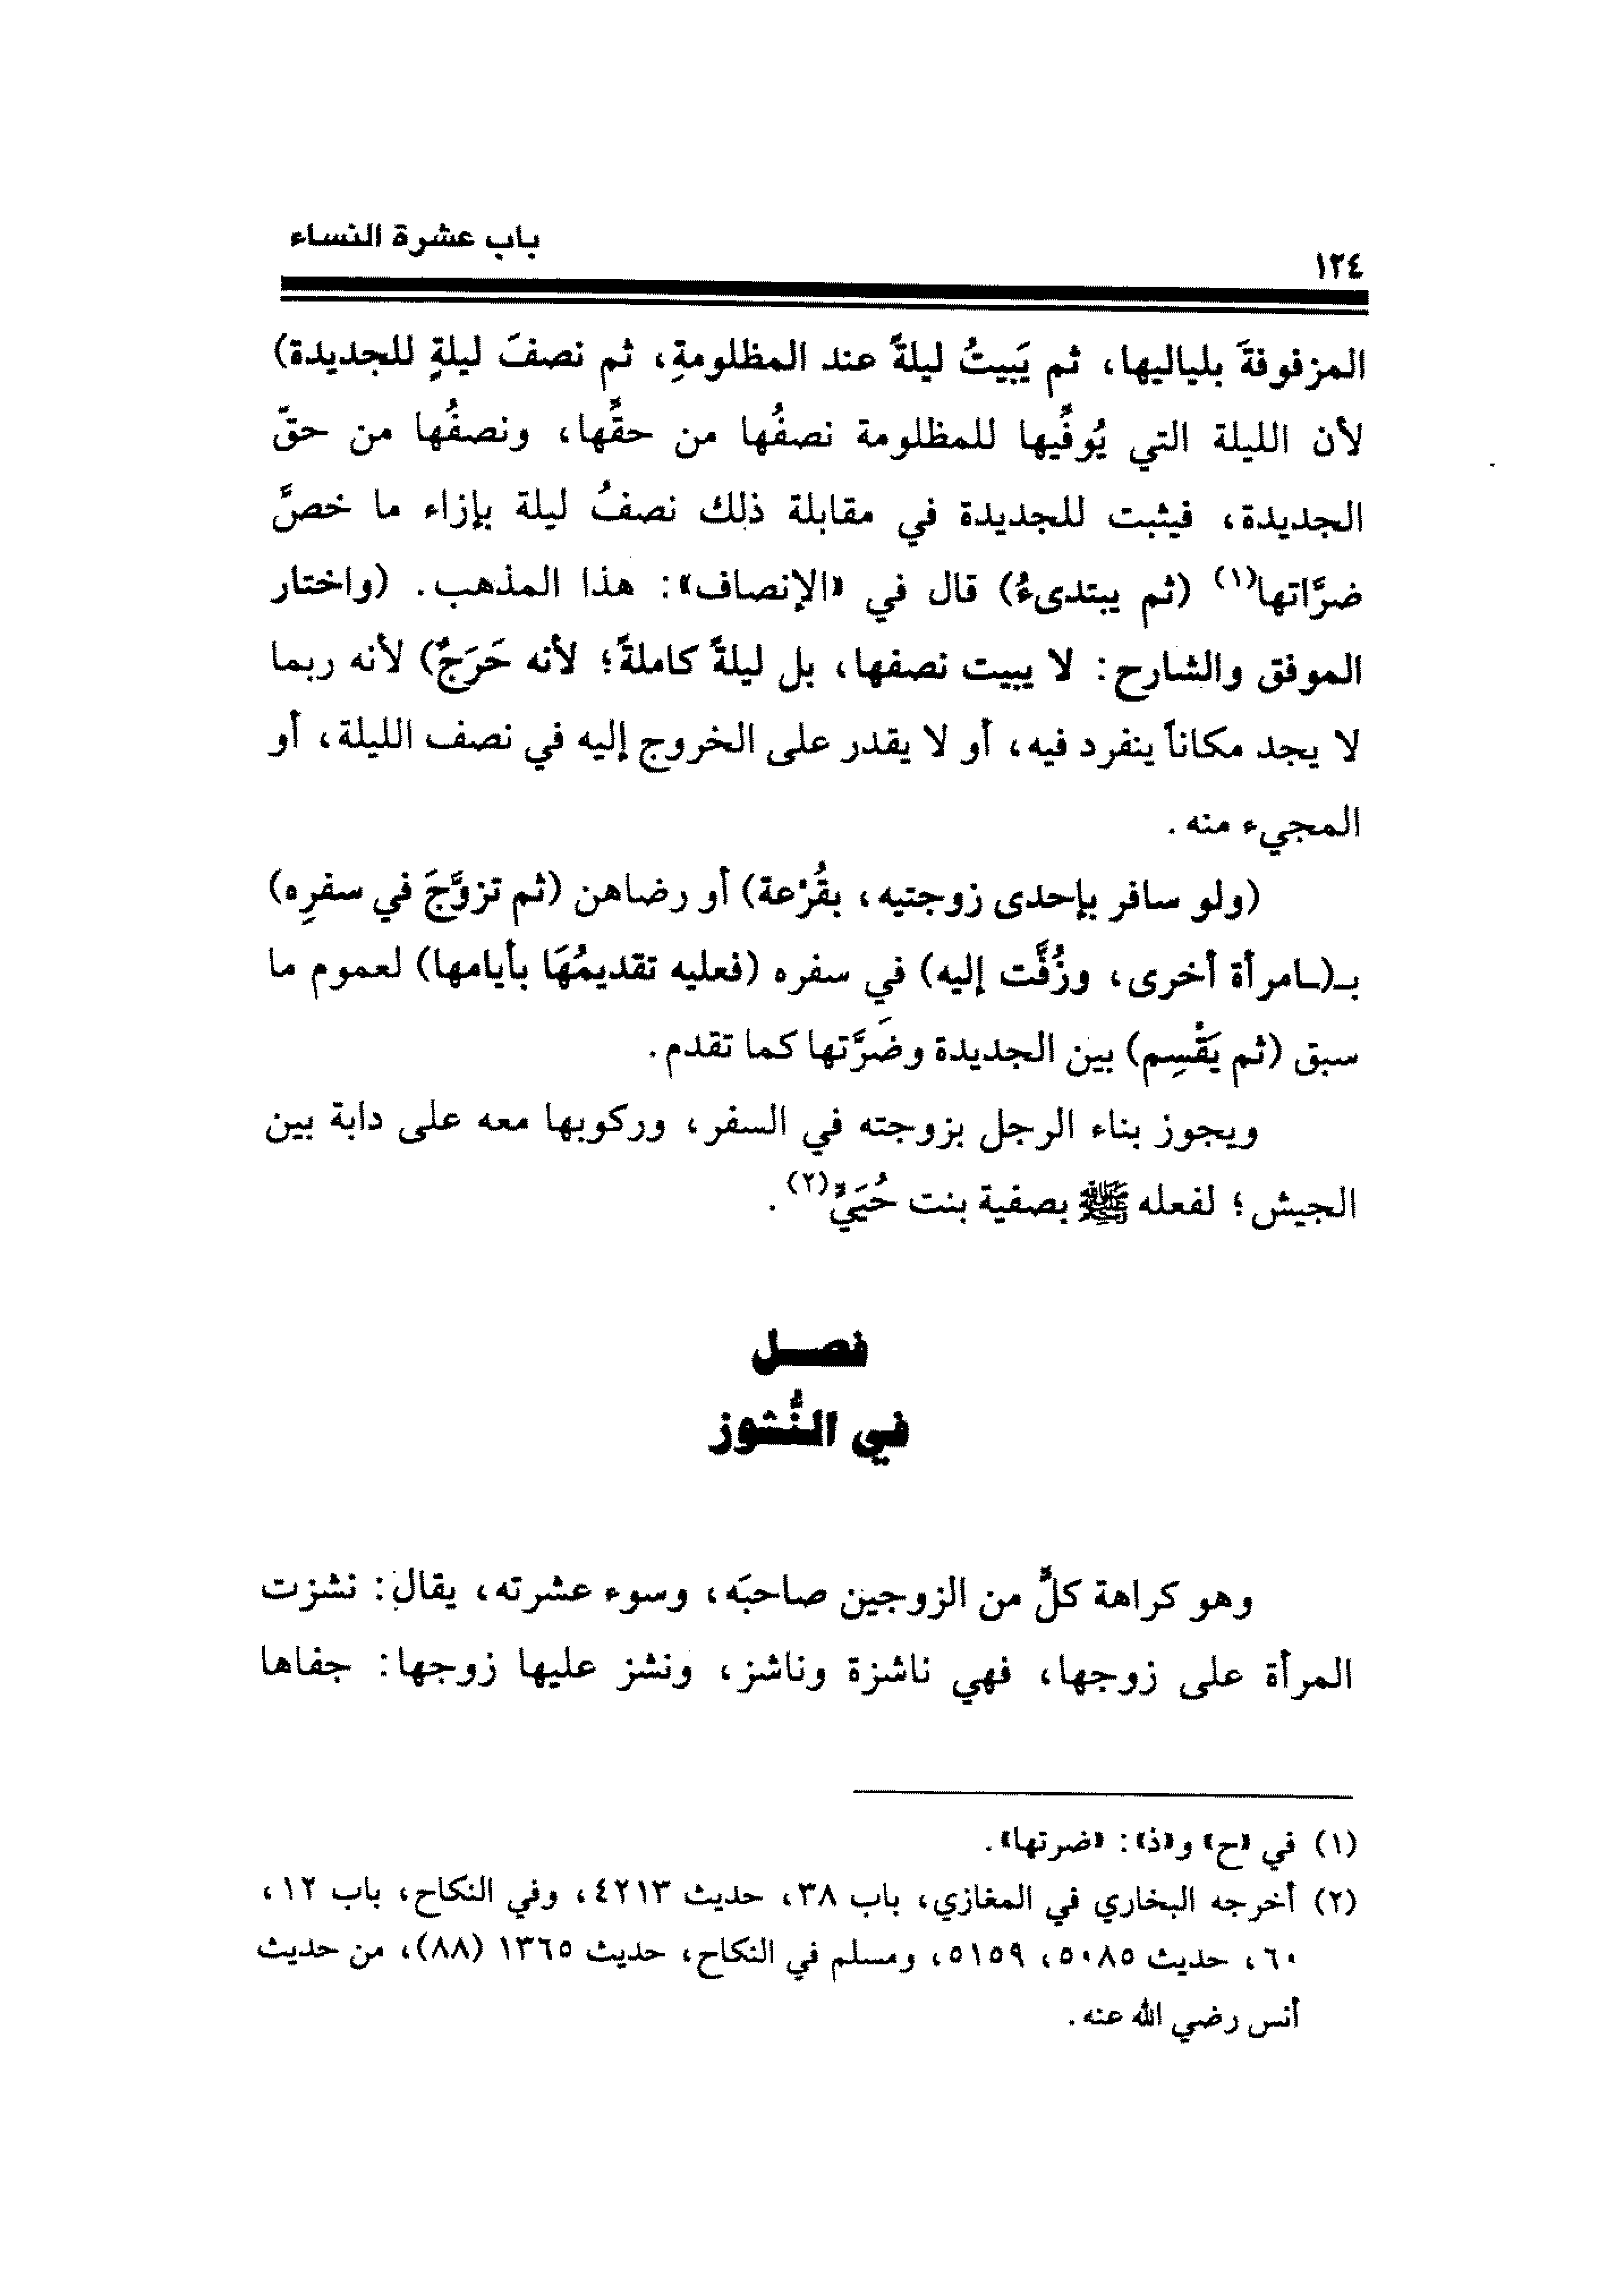 باب عشرة النساء
١٢٤
المزفوفةَ بلياليها، ثم يَبيتُ ليلةً عند المظلومةِ، ثم نصفَ ليلةٍ للجديدة)
لأن الليلة التي يُوفِّيها للمظلومة نصفُها من حقِّها، ونصفُها من حقّ
الجديدة، فيثبت للجديدة في مقابلة ذلك نصفُ ليلة بإزاء ما خصَّ
ضرَّاتها(١) (ثم يبتدىءُ) قال في «الإنصاف»: هذا المذهب. (واختار
الموفق والشارح: لا يبيت نصفها، بل ليلةً كاملةً؛ لأنه حَرَجٌ) لأنه ربما
لا يجد مكاناً ينفرد فيه، أو لا يقدر على الخروج إليه في نصف الليلة، أو
المجيء منه.
(ولو سافر بإحدى زوجتيه، بقُرْعة) أو رضاهن (ثم تزوَّجَ في سفرِه)
بـ(ـامرأة أخرى، وزُفَّت إليه) في سفره (فعليه تقديمُهَا بأيامها) لعموم ما
سبق (ثم يَقْسِم) بين الجديدة وضَرَّتها كما تقدم.
ويجوز بناء الرجل بزوجته في السفر، وركوبها معه على دابة بين
الجيش؛ لفعله ﷺ بصفية بنت حُيَيٍّ(٢).
فصـــل
في النُّشوز
وهو كراهة كلٍّ من الزوجين صاحبَه، وسوء عشرته، يقال: نشزت
المرأة على زوجها، فهي ناشزة وناشز، ونشز عليها زوجها: جفاها
(١) في «ح» و«ذ»: «ضرتها».
(٢) أخرجه البخاري في المغازي، باب ٣٨، حديث ٤٢١٣، وفي النكاح، باب ١٢،
٦٠، حديث ٥٠٨٥، ٥١٥٩، ومسلم في النكاح، حديث ١٣٦٥ (٨٨)، من حديث
أنس رضي الله عنه.